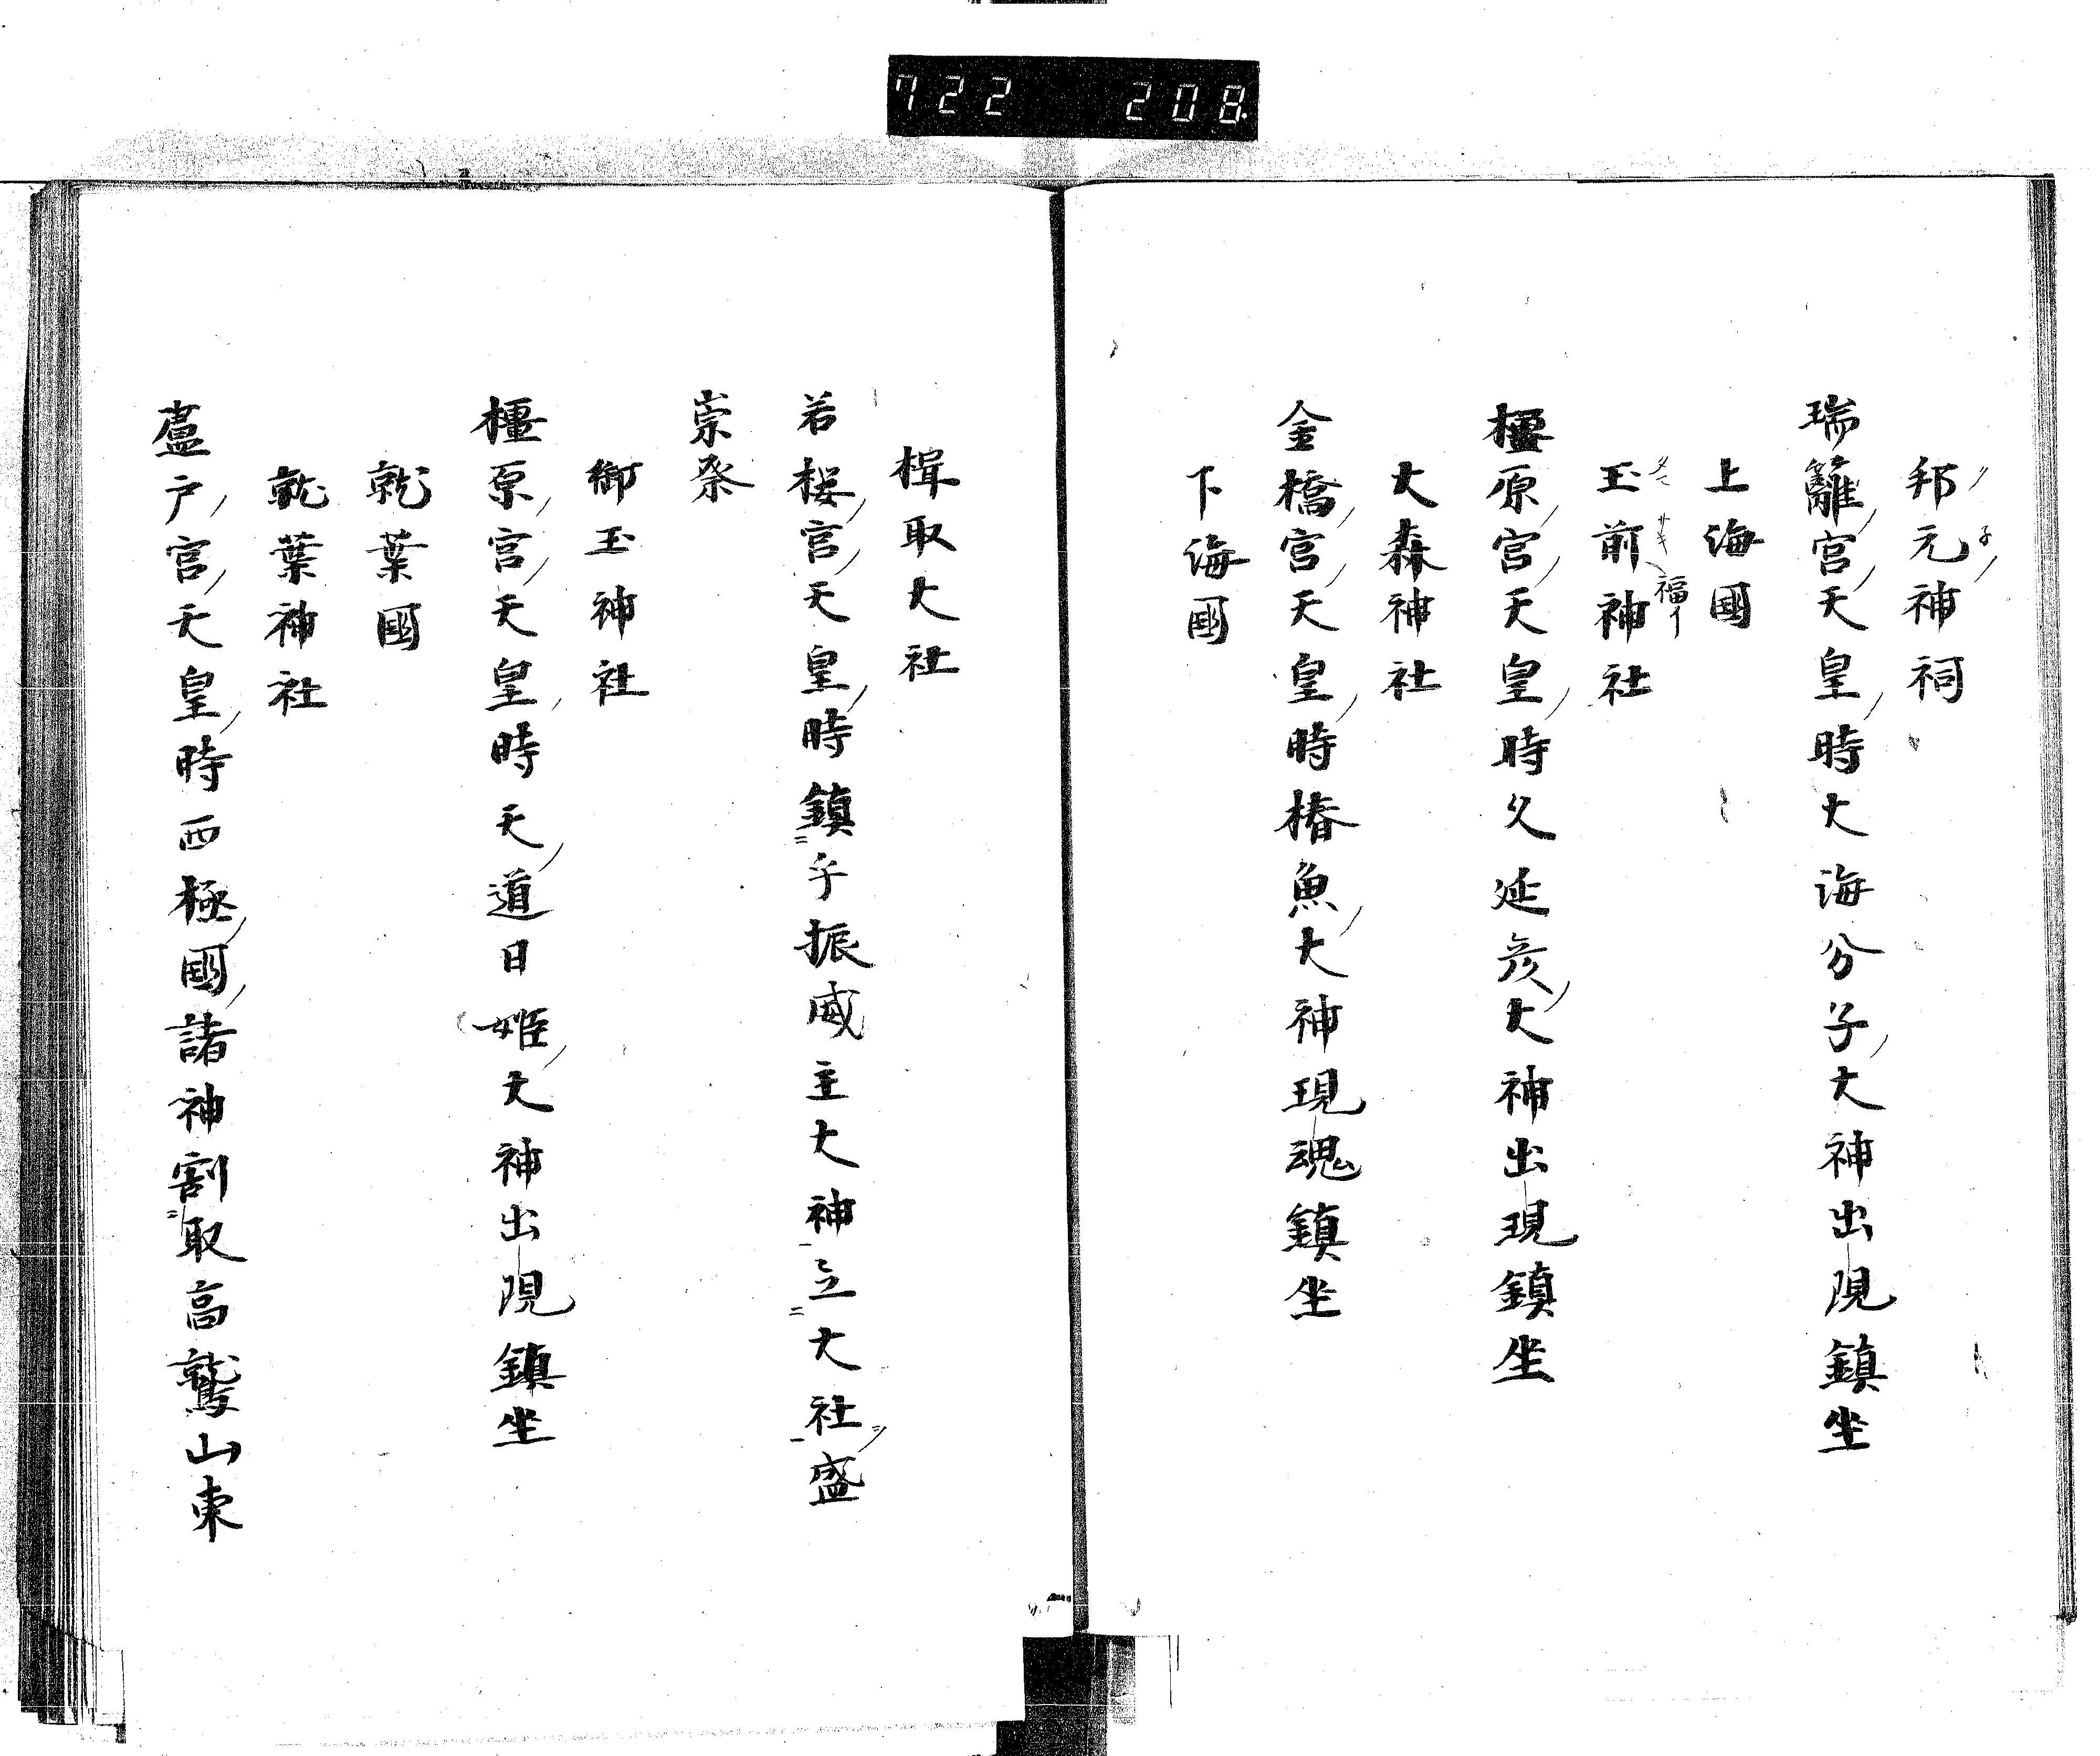 722 208
邦元神祠
瑞籬宮天皇時大海分子大神出現鎮坐
上海國
玉前神社
橿原宮天皇時久延彦大神出現鎮坐
大森神社
金橋宮天皇時椿魚大神現魂鎮坐
下海國
楫取大社
若桜宮天皇時鎮乎振威主大神立大社盛
崇祭
御玉神社
橿原宮天皇時天道日姫大神出現鎮坐
就葉國
就葉神社
盧戸宮天皇時西極國諸神割取高鷲山東